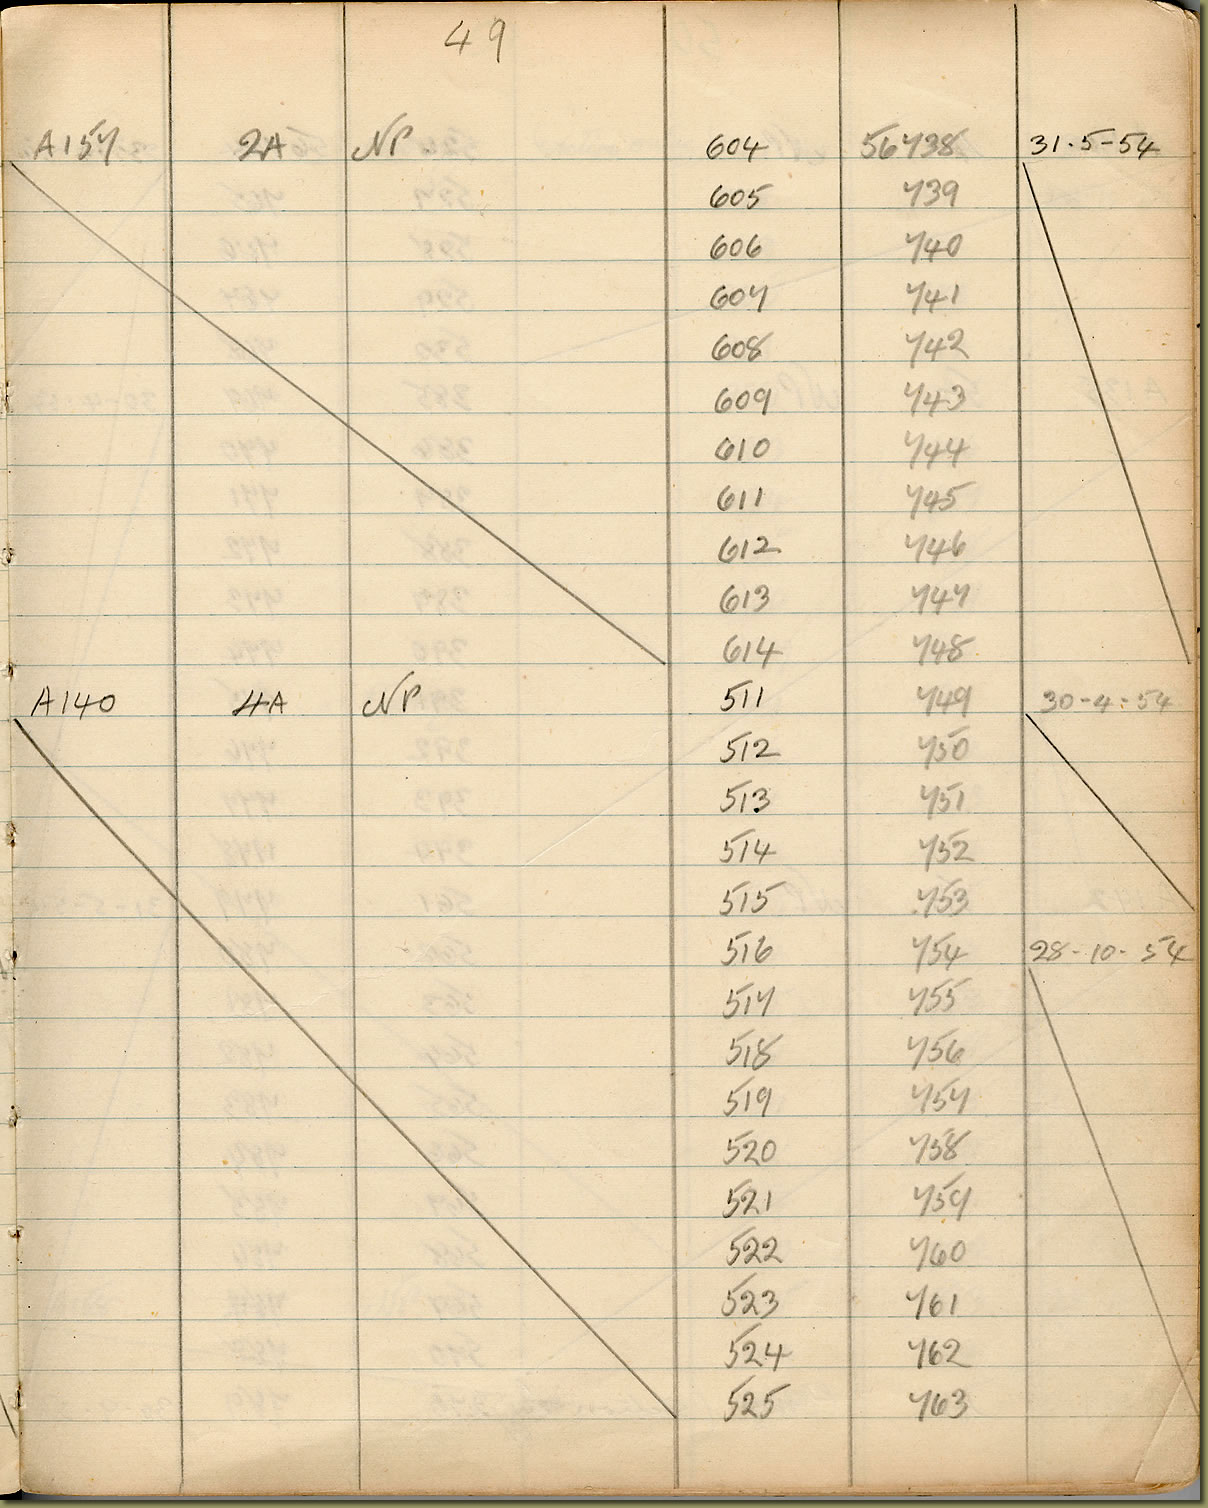 49
A157 2A NP 604 56738 31.5-54
605 739
606 740
607 741
608 742
609 743
610 744
611 745
612 746
613 747
614 748
A140 4A NP 511 749 30-4-54
512 750
513 751
514 752
515 753
516 754 28-10-54
517 755
518 756
519 757
520 758
521 759
522 760
523 761
524 762
525 763